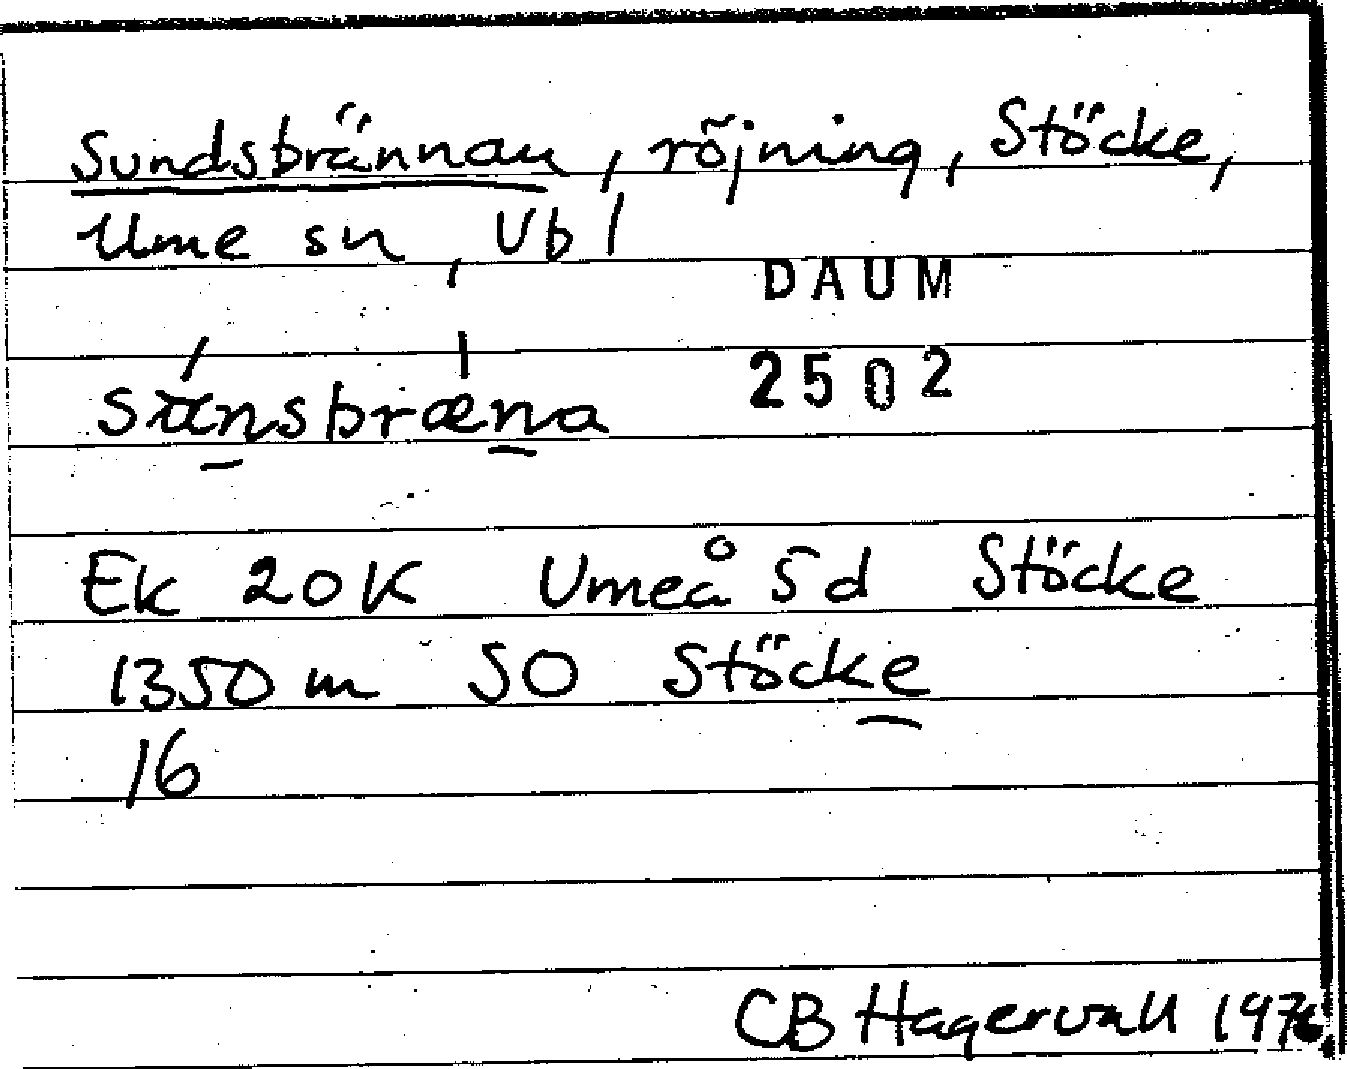 Sundsbrännan, röjning, Stöcke,
Ume sn, Vbl
DAUM
2502
Ek 20K Umeå 5d Stöcke
1350 m SO Stöcke
16
CB Hagervall